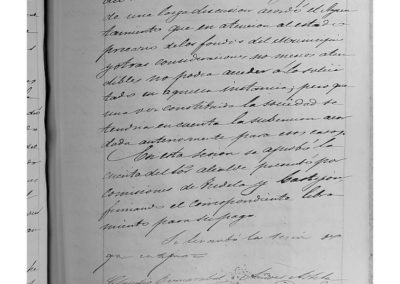 de una larga discusion acordó el Ayun
tamiento que en atencion al estado
precario de los fondos del Municipio
y otras consideraciones no menos aten
dibles no podia acceder á lo solici
tado en aquella instancia; pero que
una vez constituida la sociedad se
tendria en cuenta la subvencion acor
dada anteriormente para esos casos.
En esta sesion se aprobó la
cuenta del Sr. Alcalde presentó por
comisiones de Tudela y Castejon
firmando el correspondiente libra
miento para su pago
Se levantó la sesion de
que certifico